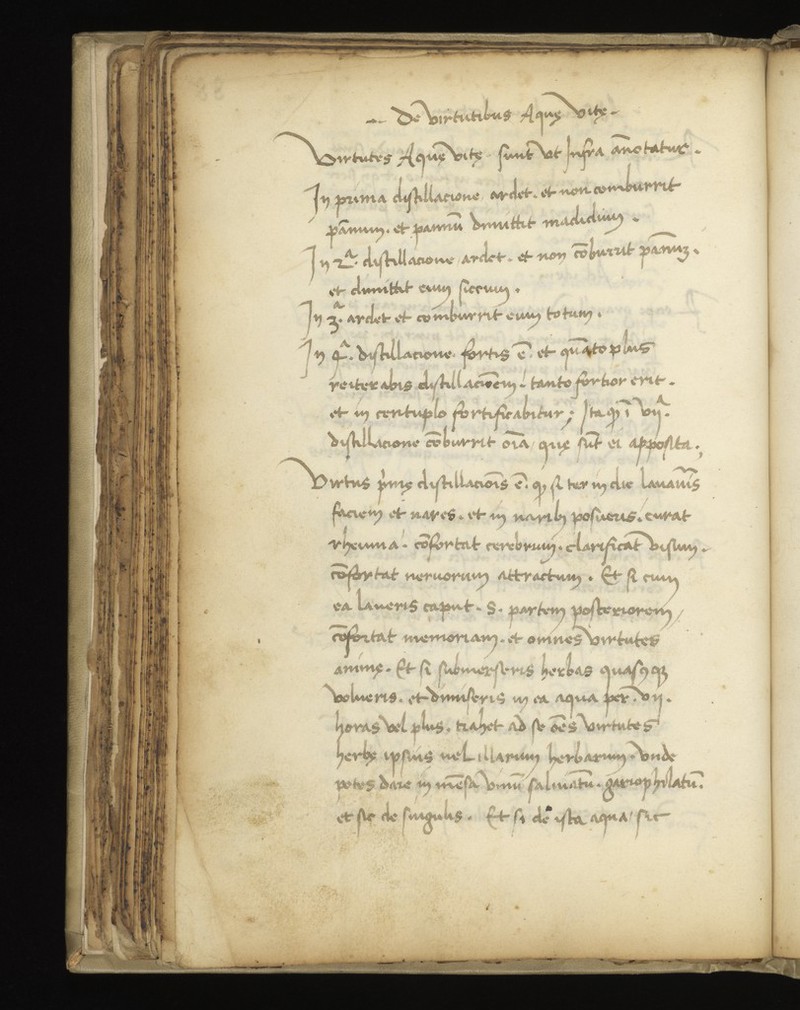 De virtutibus Aquę vitę.
Virtutes Aquę vitę sunt ut Infra añotatur.
In prima distillacione ardet. et non comburrit
pannum. et pannũ dimittit madidum.
In 2ᵃ. distillacione ardet. et non cõburrit pannuʒ.
et dimittit eum siccum.
In 3ᵃ. ardet et comburrit eum totum.
In 4ᵃ. distillacione. fortis ẽ. et quãto plus
reiterabis distillaciõem. tanto fortior erit.
et in centuplo fortificabitur; Ita qꝫ ĩ vijᵃ.
distillacione cõburrit oĩa quę sũt ei apposita.
Virtus p̃mę distillaciõis ẽ. qꝫ si ter in die lavaũis
faciem et nares. et in naribꝫ posueris. curat
rheuma. cõfortat cerebrum. clarificat visum.
cõfortat nervorum attractum. Et si cum
ea laveris caput. s. partem posteriorem
cõfortat memoriam. et omnes virtutes
animę. Et si submerseris herbas quascqꝫ
volueris. et dimiseris in ea aqua per. vij.
horas vel plus. trahet ad se ões virtutes
herbę ipsius vel illarum herbarum. Unde
potes dare in mẽsa vinũ salviatũ. gariophilatũ.
et sic de singulis. Et si de ista aqua sic